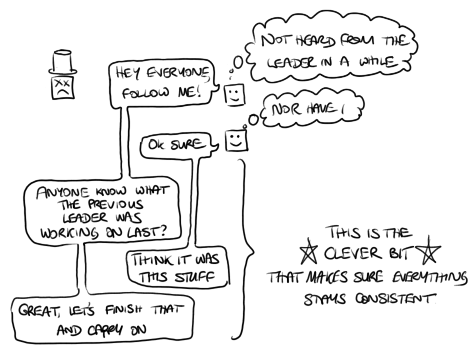 NOT HEARD FROM THE
LEADER IN A WHILE
HEY EVERYONE,
FOLLOW ME!
NOR HAVE I
OK SURE
ANYONE KNOW WHAT
THE PREVIOUS
LEADER WAS
WORKING ON LAST?
THINK IT WAS
THIS STUFF
GREAT, LET'S FINISH THAT
AND CARRY ON
THIS IS THE
CLEVER BIT
THAT MAKES SURE EVERYTHING
STAYS CONSISTENT